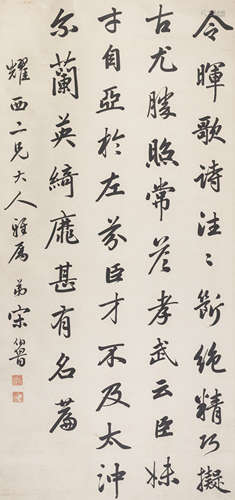 令暉歌詩往〻嶄絶精巧擬
古尤勝照常荅孝武云臣妹
才自亞於左芬臣才不及太沖
尔蘭英綺靡甚有名篇
耀西二兄大人雅屬 弟宋伯魯